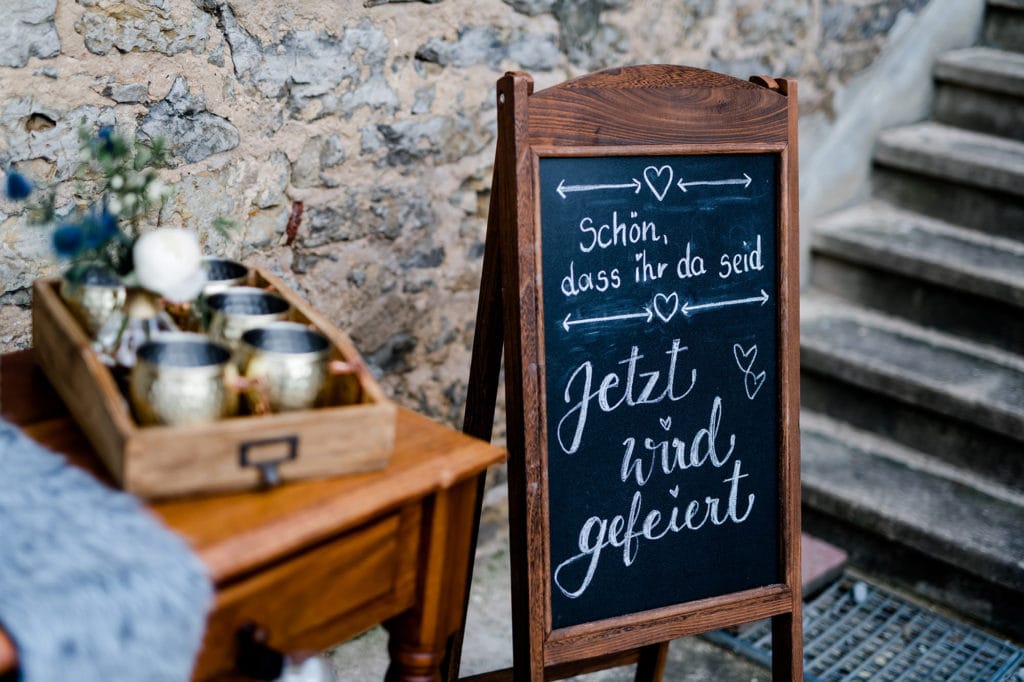 Schön,
dass ihr da seid
Jetzt
wird
gefeiert